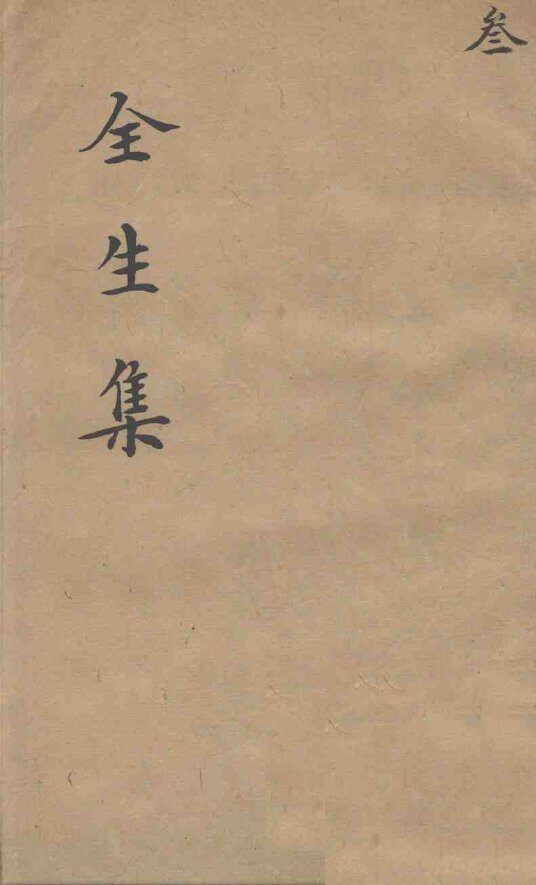 叁
全生集